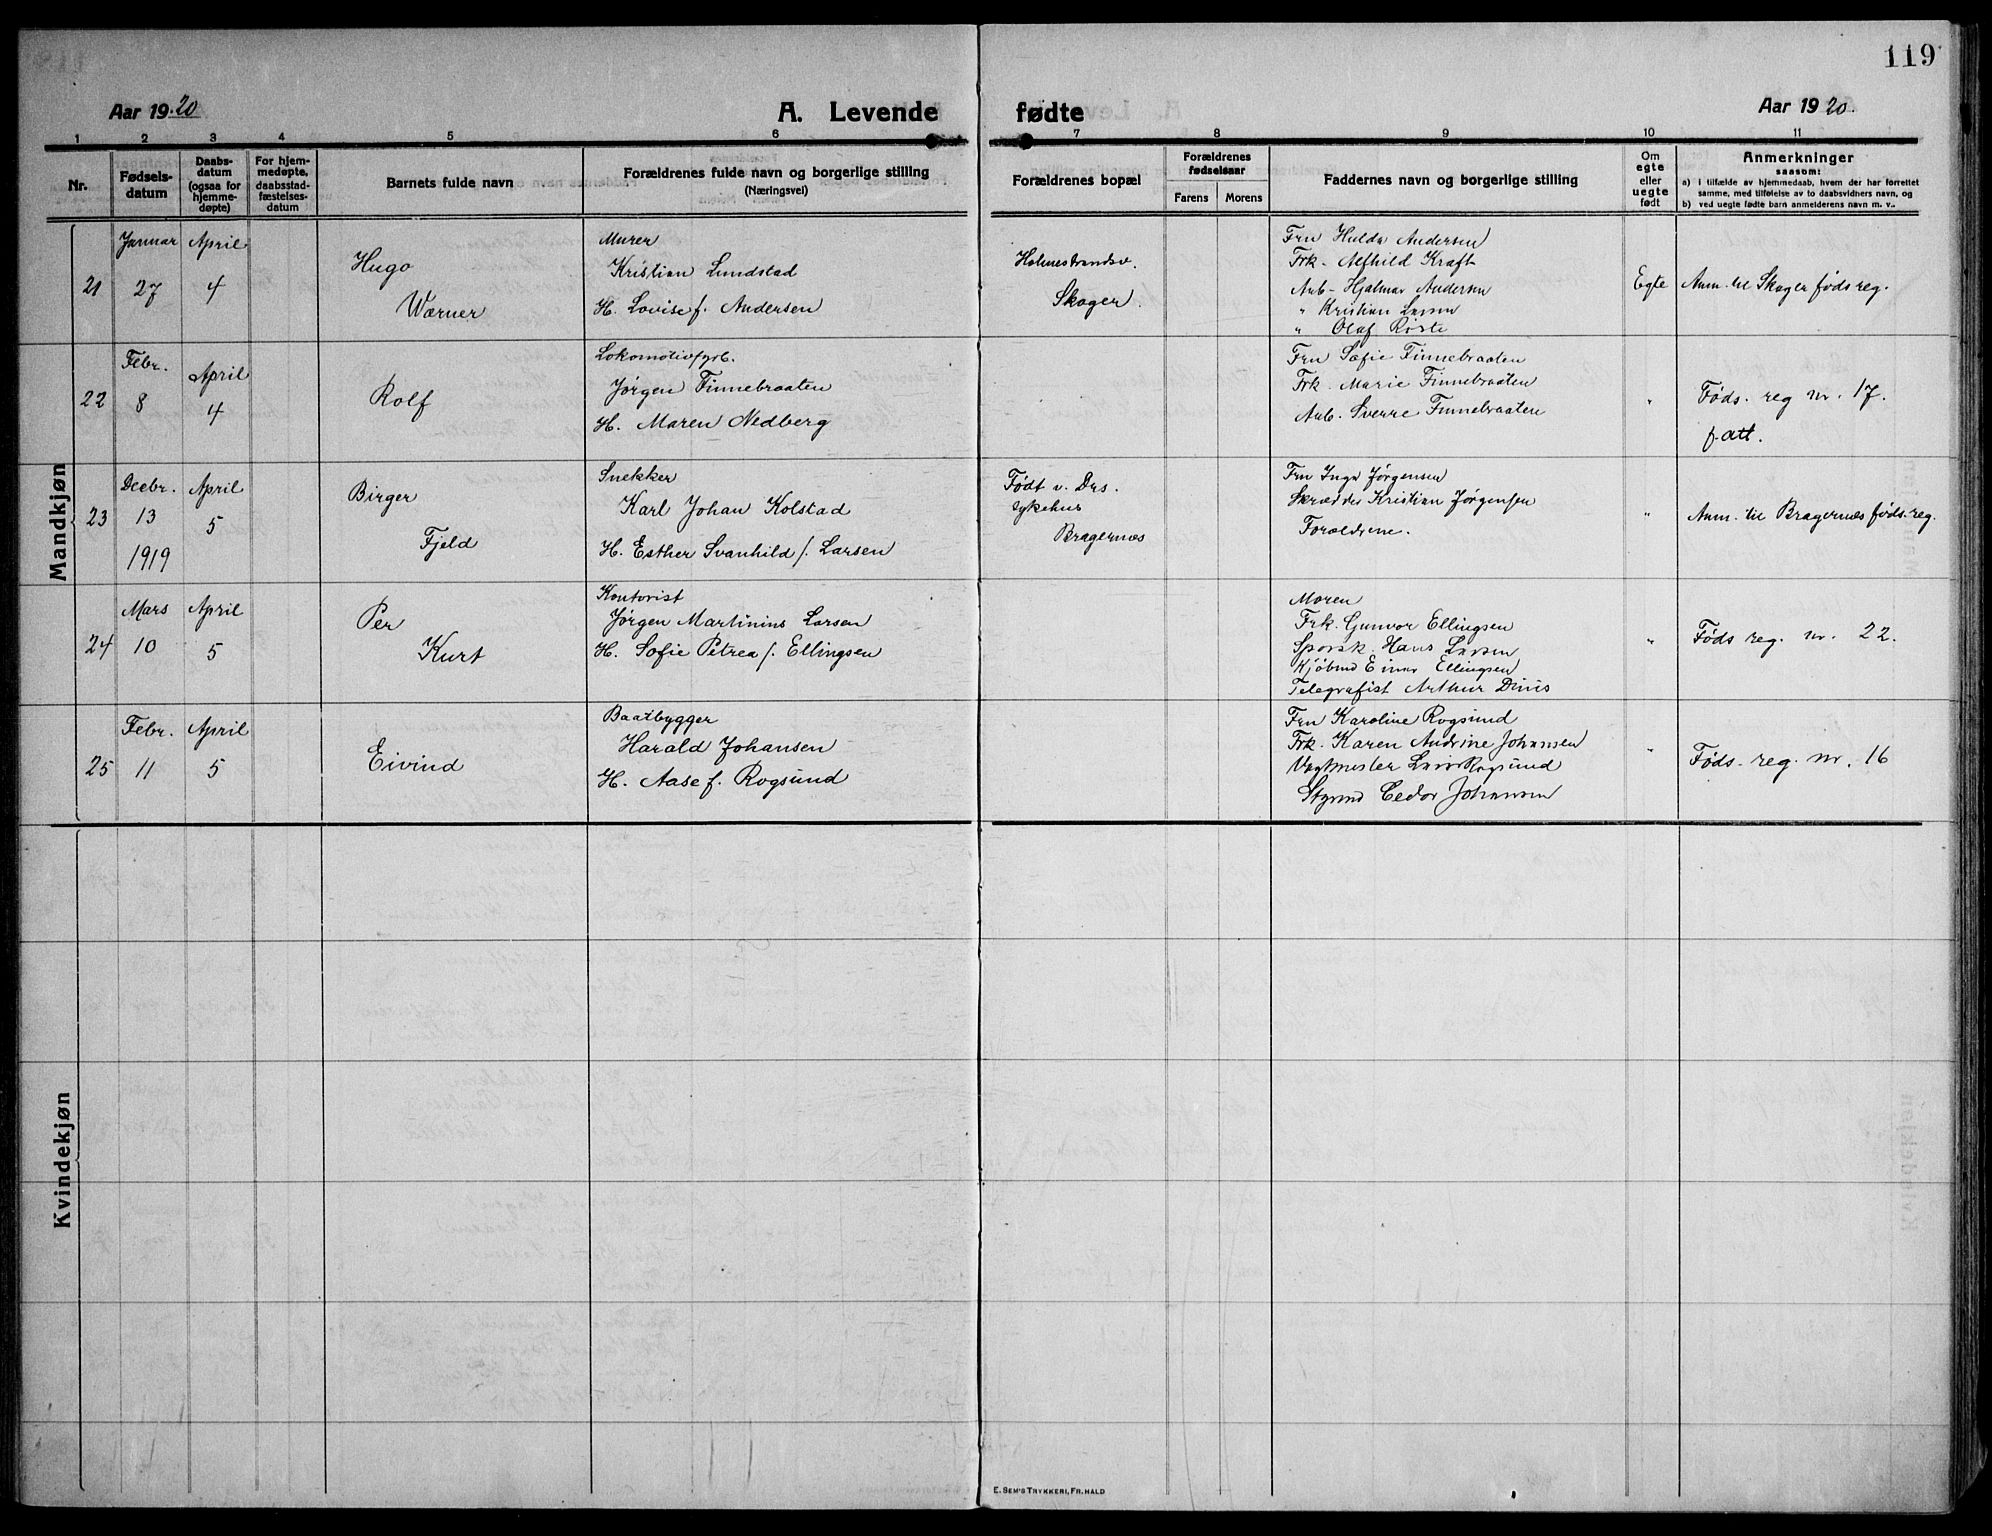 119
Aar 1920
A. Levende fødte
Aar 1920.
1 2 3 4 5 6 7 8 9 10 11
Nr.
Fødselsdatum
Daabsdatum (ogsaa for hjemmedøpte)
For hjemmedøpte, daabsstadfæstelsesdatum
Barnets fulde navn
Forældrenes fulde navn og borgerlige stilling (Næringsvei)
Forældrenes bopæl
Forældrenes fødselsaar
Farens Morens
Faddernes navn og borgerlige stilling
Om egte eller uegte født
Anmerkninger
saasom:
a) i tilfælde av hjemmedaab, hvem der har forrettet samme, med tilføielse av to daabsvidners navn, og
b) ved uegte fødte barn anmelderens navn m. v.
Mandkjøn
21
Januar 27
April 4
Hugo
Wærner
Murer
Kristian Lundstad
H. Lovise f. Andersen
Holmestrandsv.
Skoger.
Fru Hulda Andersen
Frk. Alfhild Kraft
Arb. Hjalmar Andersen
" Kristian Larsen
" Olaf Røste
Egte
Anm. til Skoger fødsreg.
22
Febr. 8
April 4
Rolf
Lokomotivfyrb.
Jørgen Finnebraaten
H. Maren Nedberg
Fru Sofie Finnebraaten
Frk. Marie Finnebraaten
Arb. Sverre Finnebraaten
"
Føds. reg nr. 17.
f. att.
23
Decbr. 13 1919
April 5
Birger
Fjeld
Snekker
Karl Johan Kolstad
H. Esther Svanhild f. Larsen
Født v. Drs.
sykehus
Bragernæs
Fru Inga Jørgensen
Skrædder Kristian Jørgensen
Forældrene.
"
Anm. til Bragernæs føds.reg.
24
Mars 10
April 5
Per
Kurt
Kontorist
Jørgen Martinius Larsen
H. Sofie Petrea f. Ellingsen
Moren
Frk. Gunvor Ellingsen
Hans Larsen
Kjøbmd Einar Ellingsen
Telegrafist Arthur
"
Føds reg. nr. 22.
25
Febr. 11
April 5
Eivind
Baatbygger
Harald Johansen
H. Aase f. Rogsund
Fru Karoline Rogsund
Frk. Karen Andrine Johansen
Rogsund
Styrmd Johansen
"
Føds. reg. nr. 16
Kvindekjøn
E. SEM'S TRYKKERI, FR.HALD